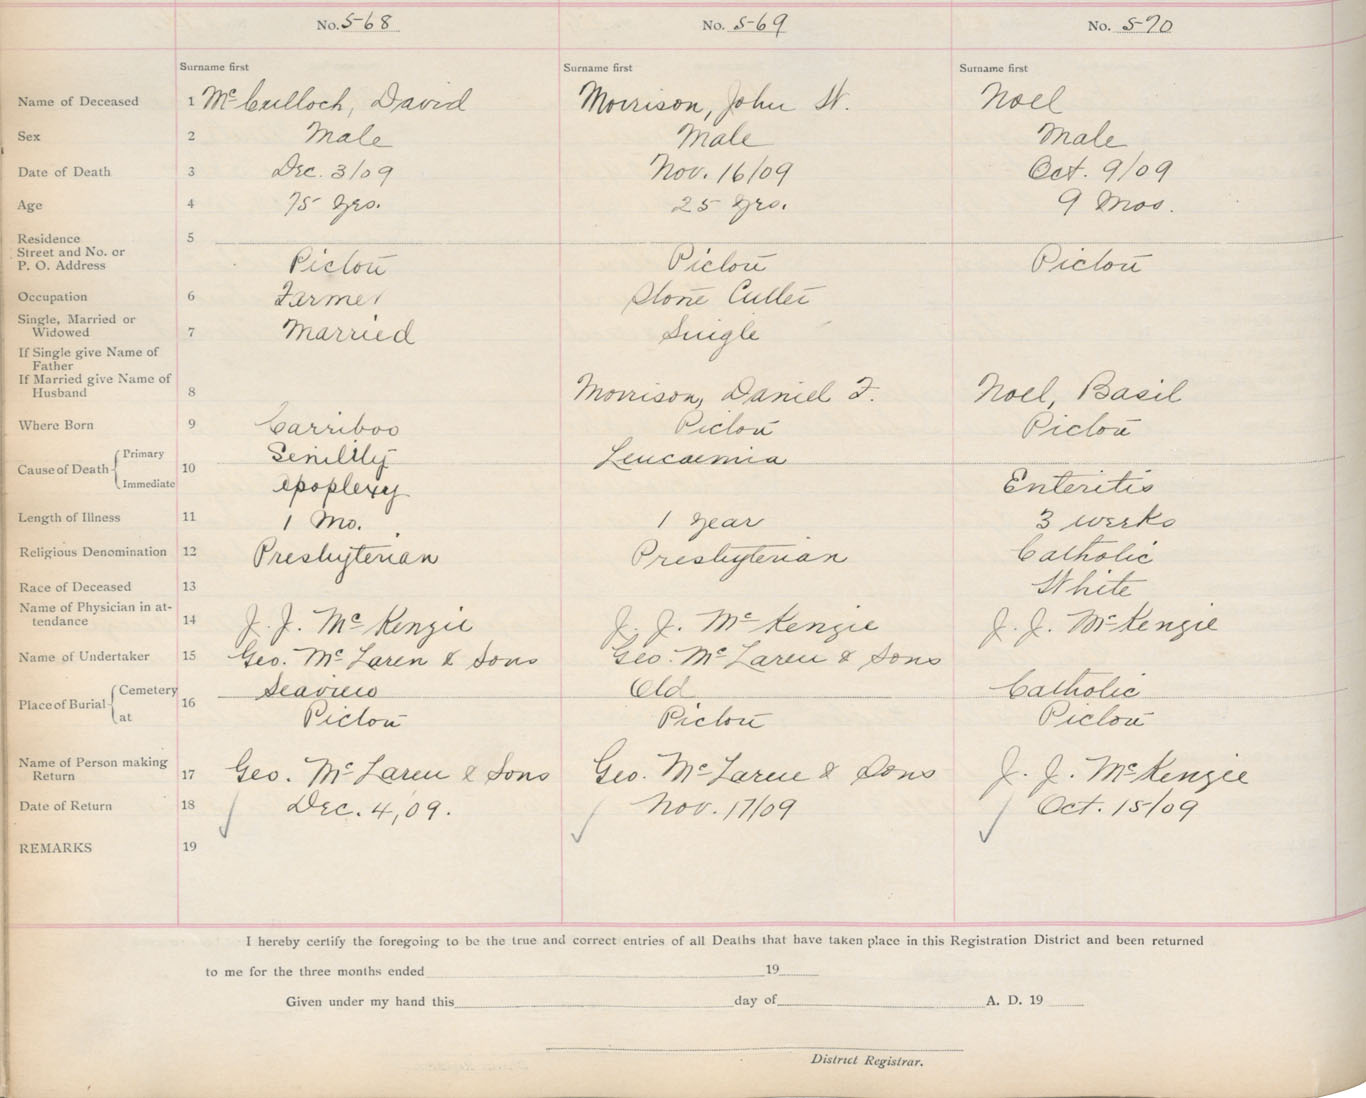 No. 568 No. 569 No. 570
Surname first Surname first Surname first
Name of Deceased 1 McCulloch, David Morrison, John W. Noel
Sex 2 Male Male Male
Date of Death 3 Dec. 3/09 Nov. 16/09 Oct. 9/09
Age 4 75 yrs. 25 yrs. 9 Mos.
Residence 5
Street and No. or
P. O. Address Pictou Pictou Pictou
Occupation 6 Farmer Stone Cutter
Single, Married or
Widowed 7 Married Single
If Single give Name of
Father
If Married give Name of
Husband 8 Morrison, Daniel F. Noel, Basil
Where Born 9 Carriboo Pictou Pictou
Cause of Death 10 Primary Senility Leucaemia
Immediate epoplexy Enteritis
Length of Illness 11 1 Mo. 1 year 3 weeks
Religious Denomination 12 Presbyterian Presbyterian Catholic
Race of Deceased 13 White
Name of Physician in at-
tendance 14 J. J. McKenzie J. J. McKenzie J. J. McKenzie
Name of Undertaker 15 Geo. McLaren & Sons Geo. McLaren & Sons
Place of Burial 16 Cemetery Seaview Old Catholic
at Pictou Pictou Pictou
Name of Person making
Return 17 Geo. McLaren & Sons Geo. McLaren & Sons J. J. McKenzie
Date of Return 18 Dec. 4, 09. Nov. 17/09 Oct. 15/09
REMARKS 19
I hereby certify the foregoing to be the true and correct entries of all Deaths that have taken place in this Registration District and been returned
to me for the three months ended 19
Given under my hand this day of A. D. 19
District Registrar.